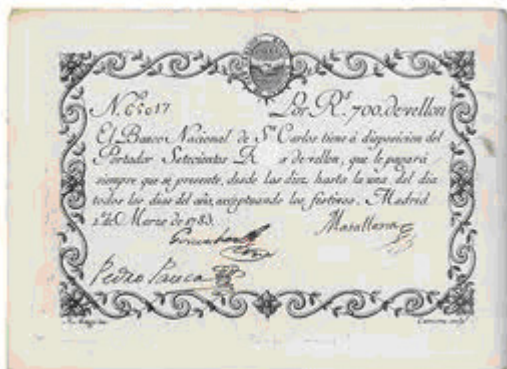 N. Por R.s 700. de vellon
El Banco Nacional de S.n Carlos tiene á disposicion del
Portador Setecientos R s de vellon, que le pagará
siempre que se presente, desde las diez hasta la una del dia
todos los dias del año, exceptuando los festivos. Madrid
1.º de Marzo de 1783.
Pedro